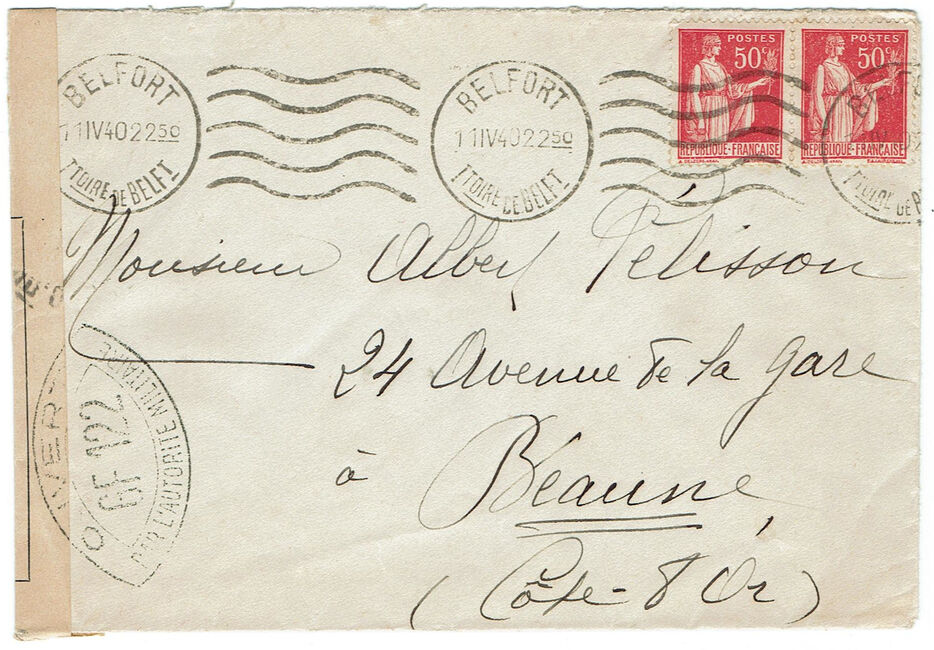 BELFORT
11 IV 40 22 50
TTOIRE DE BELFT
BELFORT
11 IV 40 22 50
TTOIRE DE BELFT
POSTES
50c
REPUBLIQUE-FRANÇAISE
POSTES
50c
REPUBLIQUE-FRANÇAISE
TTOIRE DE
Monsieur Albert Pélisson
24 Avenue de la Gare
à Béaune
(Côte-d'Or)
OUVERT
PAR L'AUTORITÉ MILITAIRE
GF 122